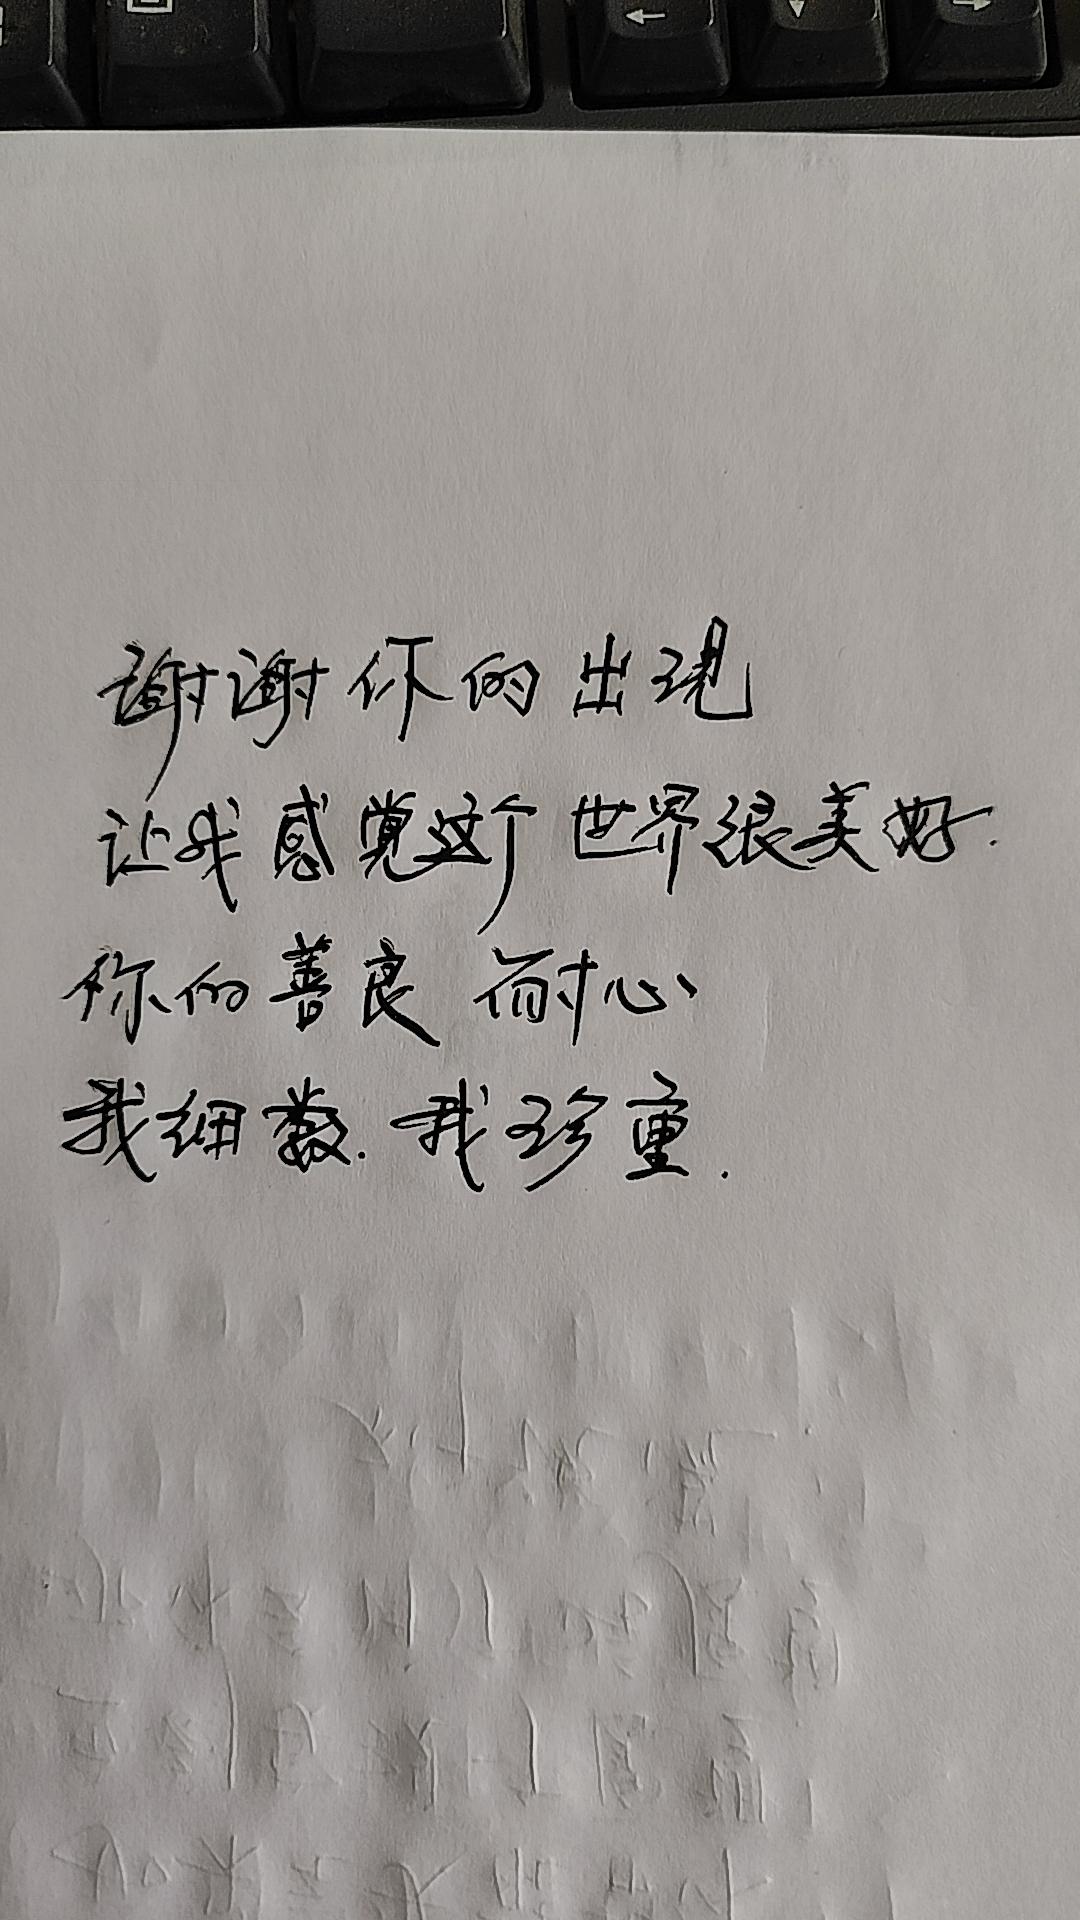 谢谢你的出现
让我感觉这个世界很美好.
你的善良 耐心
我细数.我珍重.